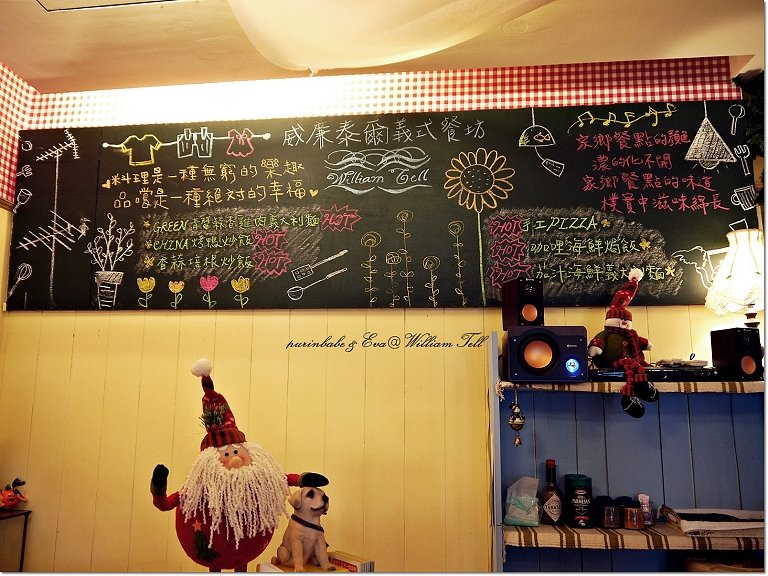 威廉泰爾義式餐坊
William Tell
料理是一種無窮的樂趣
品嚐是一種絕對的幸福
GREEN青醬蒜香雞肉義大利麵 HOT
CHINA烤鴨炒飯 HOT
香蒜培根炒飯 HOT
HOT 手工PIZZA
HOT 咖哩海鮮焗飯
HOT 茄汁海鮮義大利麵
家鄉餐點的韻
濃的化不開
家鄉餐點的味道
樸實中滋味綿長
purinbabe & Eva@William Tell
TABASCO
PARMESAN